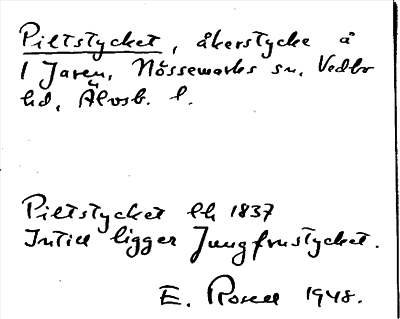 Piltstycket, åkerstycke å
1 Jaren, Nössemarks sn, Vedbo
hd, Älvsb. l.
Piltstycket lh 1837
Intill ligger Jungfrustycket.
E. Rosell 1948.